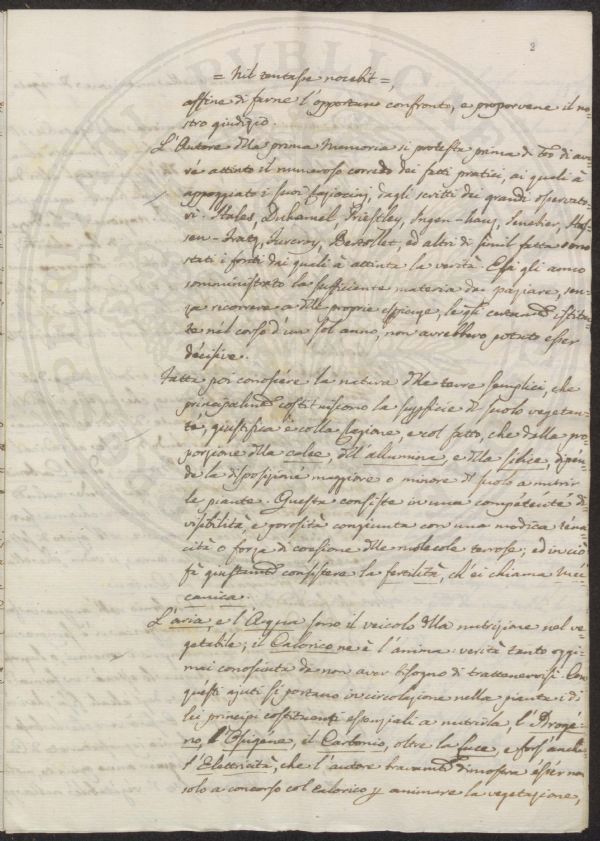 2
= Nil tentasse nocebit =,
affine di farne l'opportuno confronto, e proporvene il no=
stro giudizio.
L'Autore della prima Memoria si protesta prima di tutto di aver
attinto il numeroso corredo dei fatti pratici, ai quali à
appoggiato i suoi raziocinj, dagli scritti dei grandi osservato=
ri. Hales, Duhamel, Priestley, Ingen-hauz, Senebier, Has=
sen-Fratz, Furcroy, Bertollet, ed altri di simil fatta sono
stati i fonti dai quali à attinta la verità. Essi gli anno
somministrato la sufficiente materia da raziare, sen=
za ricorrere a delle proprie esperienze, le quali certamte istitui=
te nel corso d'un sol anno, non avrebbero potuto esser
decisive.
Fatta poi conoscere la natura delle terre semplici, che
principalmte costituiscono la superficie del suolo vegetan=
te, giustifica e colla ragione, e col fatto, che dalla pro=
porzione della calce, dell'allumina, e della silice, dipen=
de la disposizione maggiore o minore del suolo a nutrir
le piante. Questa consiste in una competente di=
visibilità e porosità congiunta con una modica tena=
cità o forza di coesione delle molecole terrose; ed in ciò
fà giustamte consistere la fertilità, ch'ei chiama mec=
canica.
L'aria e l'Acqua sono il veicolo della nutrizione nel ve=
getabile; il Calorico ne è l'anima: verità tanto oggi=
mai conosciuta da non aver bisogno di trattenervisi. Con
questi ajuti si portano in circolazione nella pianta i di
lei principj costituenti essenziali a nutrirla, l'Idrogé=
no, l'Ossigéne, il Carbonio, oltre la luce, e fors'anche
l'Elettricità, che l'autore bravamte dimostra esser non
solo a concorso col Calorico p animare la vegetazione,